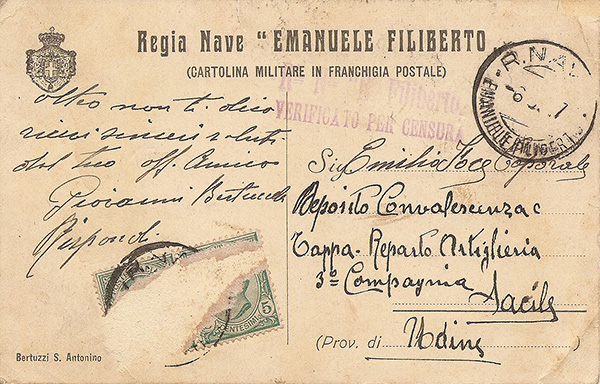 Regia Nave "EMANUELE FILIBERTO
(CARTOLINA MILITARE IN FRANCHIGIA POSTALE)
R. N. E. Filiberto
VERIFICATO PER CENSURA
R. NAV
EMANUELE FILIBERTO
altro non ti dico
ricevi sinceri saluti
dal tuo aff. Amico
Giovanni
Rispondi
Sig Emilio Caporale
Deposito Convalescenza e
Tappa - Reparto Artiglieria
3º Compagnia
Sacile
(Prov. di Udine
CENTESIMI 5
Bertuzzi S. Antonino